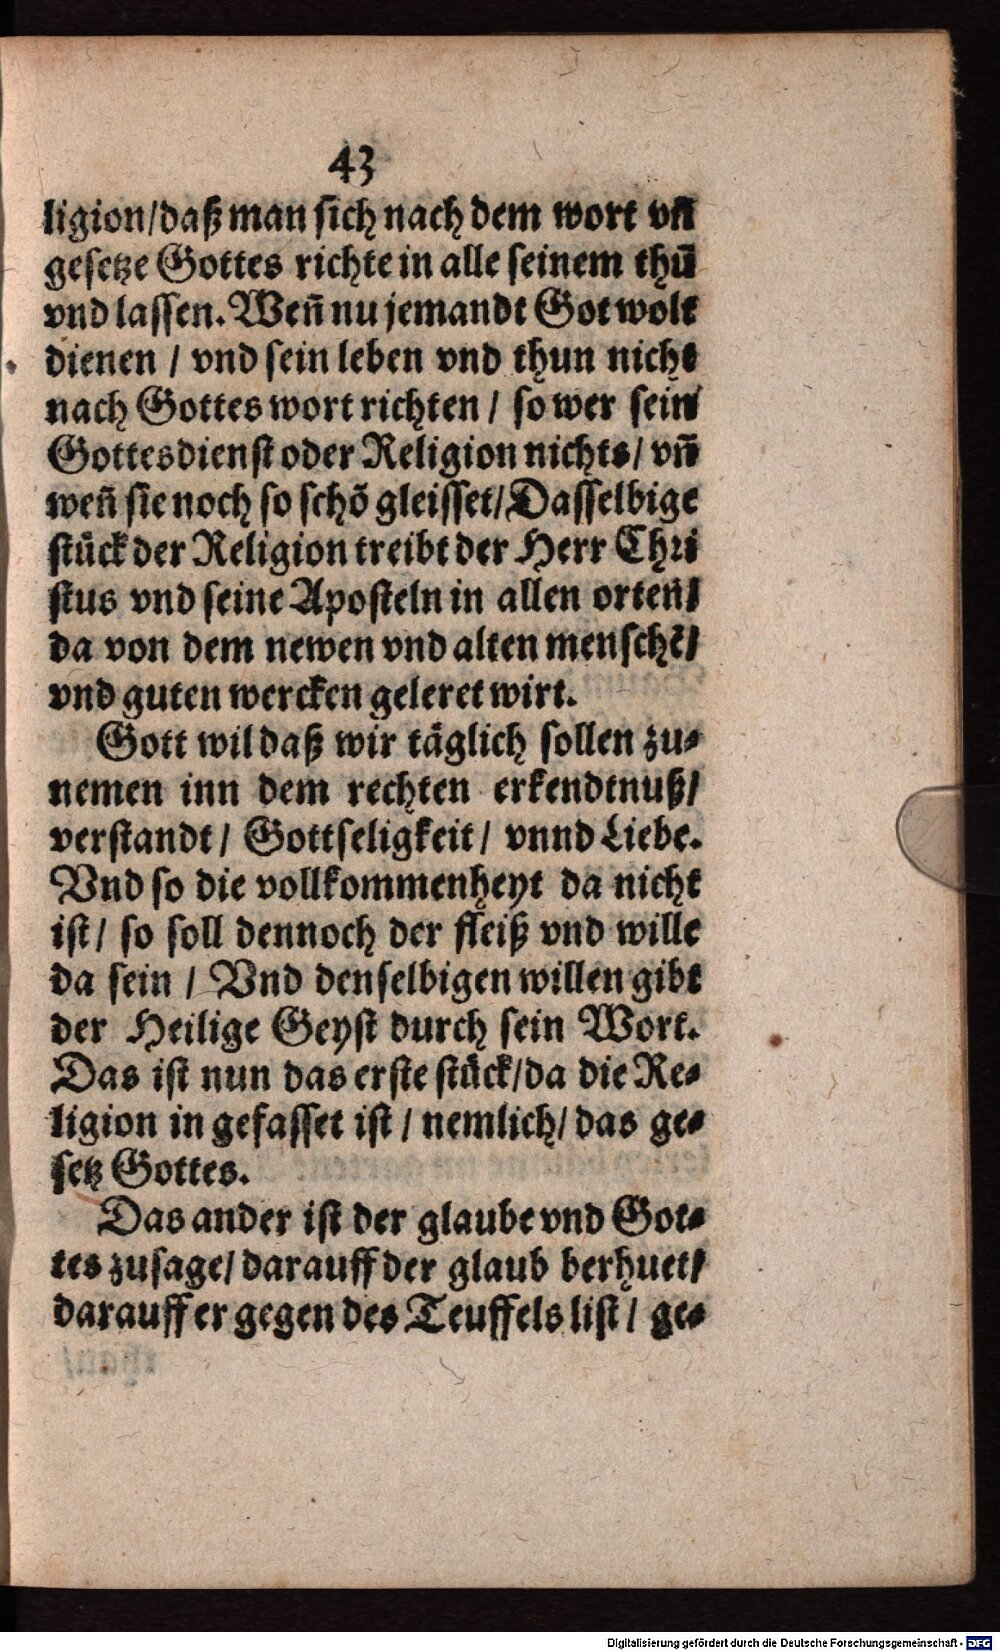 43
ligion/daß man sich nach dem wort vñ
gesetze Gottes richte in alle seinem thū
vnd lassen. Weñ nu jemandt Got wolt
dienen / vnd sein leben vnd thun nicht
nach Gottes wort richten / so wer sein
Gottesdienst oder Religion nichts/ vñ
weñ sie noch so schō gleisset/Dasselbige
stück der Religion treibt der Herr Chri
stus vnd seine Aposteln in allen orten/
da von dem newen vnd alten menschē/
vnd guten wercken geleret wirt.
Gott wil daß wir täglich sollen zu-
nemen inn dem rechten erkendtnuß/
verstandt/ Gottseligkeit/ vnnd Liebe.
Vnd so die vollkommenheyt da nicht
ist/ so soll dennoch der fleiß vnd wille
da sein / Vnd denselbigen willen gibt
der Heilige Geyst durch sein Wort.
Das ist nun das erste stück/da die Re-
ligion in gefasset ist / nemlich/ das ge-
setz Gottes.
Das ander ist der glaube vnd Got-
tes zusage/ darauff der glaub berhuet/
darauff er gegen des Teuffels list/ ge-
Digitalisierung gefördert durch die Deutsche Forschungsgemeinschaft - DFG